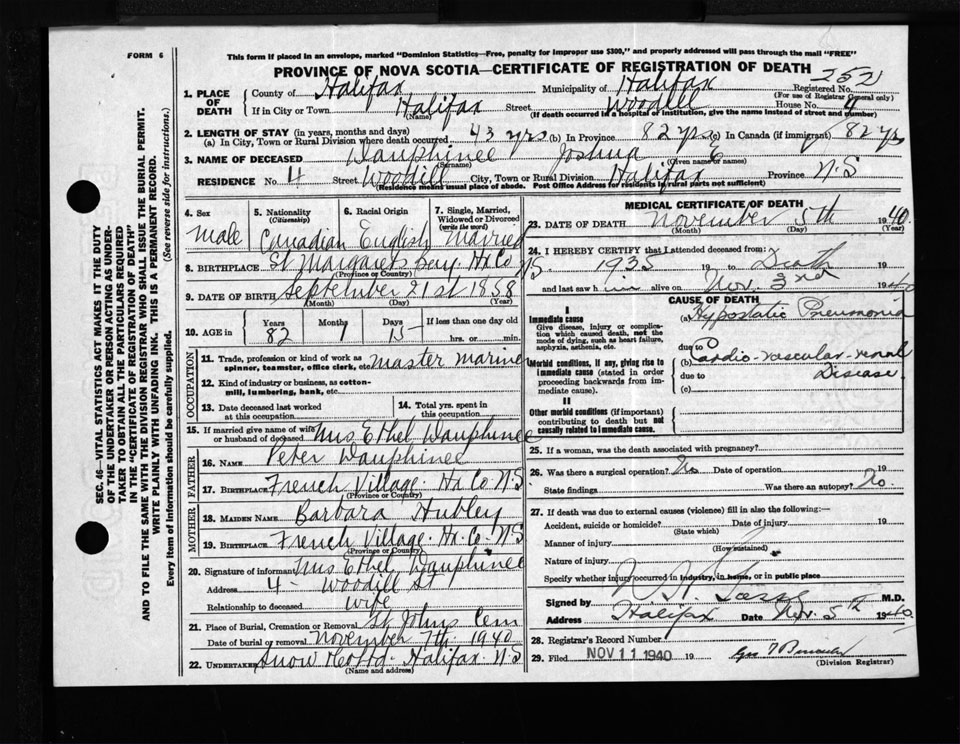 FORM 6
This form if placed in an envelope, marked "Dominion Statistics—Free, penalty for improper use $300," and properly addressed will pass through the mail "FREE"
PROVINCE OF NOVA SCOTIA—CERTIFICATE OF REGISTRATION OF DEATH
1. PLACE OF DEATH County of Halifax Municipality of Halifax Registered No. 2521
(For use of Registrar General only)
If in City or Town Halifax Street Woodill House No. 4
(Name) (If death occurred in a hospital or institution, give the name instead of street and number)
2. LENGTH OF STAY (in years, months and days)
(a) In City, Town or Rural Division where death occurred 43 yrs (b) In Province 82 yrs (c) In Canada (if immigrant) 82 yrs
3. NAME OF DECEASED Dauphinee Joshua E
(Surname) (Given name or names)
RESIDENCE No. 4 Street Woodill City, Town or Rural Division Halifax Province N.S
(Residence means usual place of abode. Post Office Address for residents in rural parts not sufficient)
4. Sex 5. Nationality (Citizenship) 6. Racial Origin 7. Single, Married, Widowed or Divorced (write the word)
Male Canadian English Married
8. BIRTHPLACE St Margarets Bay. Hx Co N.S.
(Province or Country)
9. DATE OF BIRTH September 21st 1858
(Month) (Day) (Year)
10. AGE in Years Months Days If less than one day old
82 1 15 hrs. or min.
OCCUPATION
11. Trade, profession or kind of work as spinner, teamster, office clerk, etc. Master Marine
12. Kind of industry or business, as cotton-mill, lumbering, bank, etc.
13. Date deceased last worked at this occupation 14. Total yrs. spent in this occupation
15. If married give name of wife or husband of deceased Mrs Ethel Dauphinee
FATHER
16. NAME Peter Dauphinee
17. BIRTHPLACE French Village. Hx Co. N.S
(Province or Country)
MOTHER
18. MAIDEN NAME Barbara Hubley
19. BIRTHPLACE French Village. Hx. Co. N.S
(Province or Country)
20. Signature of informant Mrs Ethel Dauphinee
Address 4 - Woodill St
Relationship to deceased wife
21. Place of Burial, Cremation or Removal St Johns Cem
Date of burial or removal November 7th. 1940
22. Undertaker Snow Halifax. N.S
(Name and Address)
MEDICAL CERTIFICATE OF DEATH
23. DATE OF DEATH November 5th 1940
(Month) (Day) (Year)
24. I HEREBY CERTIFY that I attended deceased from:
1935 19 to Death
and last saw him alive on Nov. 3rd 1940
CAUSE OF DEATH
I
Immediate cause (a) Hypostatic Pneumonia
Give disease, injury or complication which caused death, not the mode of dying, such as heart failure, asphyxia, asthenia, etc.
due to
Morbid conditions, if any, giving rise to immediate cause (stated in order proceeding backwards from immediate cause).
(b) Cardio-vascular-renal Disease.
due to
(c)
II
Other morbid conditions (if important) contributing to death but not causally related to immediate cause.
25. If a woman, was the death associated with pregnancy?
26. Was there a surgical operation? No Date of operation 19
State findings Was there an autopsy? No
27. If death was due to external causes (violence) fill in also the following:—
Accident, suicide or homicide? Date of injury 19
(State which)
Manner of injury
(How sustained)
Nature of injury
Specify whether injury occurred in industry, in home, or in public place
Signed by M.D.
Address Halifax Date Nov. 5th 1940
28. Registrar's Record Number
29. Filed NOV 11 1940 19
(Division Registrar)
SEC. 46—VITAL STATISTICS ACT MAKES IT THE DUTY
OF THE UNDERTAKER OR PERSON ACTING AS UNDER-
TAKER TO OBTAIN ALL THE PARTICULARS REQUIRED
IN THE "CERTIFICATE OF REGISTRATION OF DEATH"
AND TO FILE THE SAME WITH THE DIVISION REGISTRAR WHO SHALL ISSUE THE BURIAL PERMIT.
WRITE PLAINLY WITH UNFADING INK. THIS IS A PERMANENT RECORD.
Every item of information should be carefully supplied. (See reverse side for instructions.)